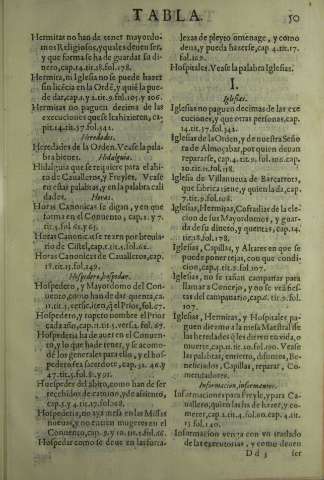 TABLA.
50
Hermitas no han de tener mayordo-
mos Religiosos, y quales deuen ser,
y que forma se ha de guardar su di-
nero, cap. 14. tit. 18. fol. 178.
Hermita, ni Iglesia no se puede hazer
sin licēcia en la Ordē, y quiē la pue-
de dar, cap. 1. y 2. tit. 9. fol. 105. y 106.
Hermitas no paguen decima de las
execuciones que se hizieren, ca-
pit. 4. tit. 37. fol. 342.
Heredades.
Heredades de la Orden. Vease la pala-
bra bienes.
Hidalguia.
Hidalguia que se requiere para el abi-
to de Caualleros, y Freyles. Vease
en estas palabras, y en la palabra cali
dades.
Horas.
Horas Canonicas se digan, y en que
forma en el Conuento, cap. 2. y 7.
tit. 5. fol. 61. y 65.
Horas Canonicas se rezen por breuia-
rio de Cistel, cap. 1. tit. 5. fol. 61.
Horas Canonicas de Caualleros, cap.
18. tit. 15. fol. 149.
Hospedero, hospedar.
Hospedero, y Mayordomo del Con-
uento, como han de dar quenta, ca.
11. tit. 5. verse. iten, q̄ el Prior, fol. 67.
Hospedero, y ropero nombre el Prior
cada año, cap. 11. tit. 5. verse. 2. fol. 67.
Hospederia ha de auer en el Conuen-
to, y lo que ha de tener, y se acomo-
dē los generales para ello, y el hos-
pedero sea sacerdote, cap. 32. 46. y
47. tit. 6. fol. 87. y 91.
Huespedes del abito, como han de ser
recebidos de camino, y de asiento,
cap. 5. y 4. tit. 17. fol. 168.
Hospederia, no aya mesa en las Missas
nueuas, y no entren mugeres en el
Conuento, cap. 9. y 10. tit. 5. fol. 66.
Hospedar como se deue en las forta-
lezas de pleyto omenage, y como
deua, y pueda hazerse, cap. 4. tit. 17.
fol. 169.
Hospitales. Vease la palabra Iglesias.
I.
Iglesias.
Iglesias no paguen decimas de las exe
cuciones, y que otras personas, cap.
14. tit. 37. fol. 342.
Iglesias de la Orden, y de nuestra Seño
ra de Almoçabar, por quien deuan
repararse, cap. 4. tit. 9. fol. 106. cap.
tit. 10. fol. 118.
Iglesia de Villanueua de Barcarrota,
que fabrica tiene, y quien la dà, cap.
tit. 6. fol. 98.
Iglesias, Hermitas, Cofradias de la elec-
cion de sus Mayordomos, y guar-
da de su dinero, y quentas, cap. 14.
tit. 18. fol. 178.
Iglesias, Capillas, y Altares en que se
puede poner rejas, con que condi-
cion, cap. 1. tit. 9. fol. 106.
Iglesias, no se tañan campanas para
llamar a Concejo, y no se vēā fies-
tas del campanario, cap. 6. tit. 9. fol.
107.
Iglesias, Hermitas, y Hospitales pa-
guen diezmo a la mesa Maestral de
las heredades q̄ les dieren en vida, o
muerte, cap. 11. tit. 20. fol. 190. Vease
las palabras, entierro, difuntos, Be-
neficiados, Capillas, reparar, Co-
mendadores.
Informacion, informantes.
Informaciones para Freyle, y para Ca-
uallero, quien las ha de hazer, y co-
meter, cap. 1. tit. 4. fol. 00. cap. 4. tit.
13. fol. 140.
Informacion venga con vn traslado
de las executorias, y como deuen
D d 3
ser